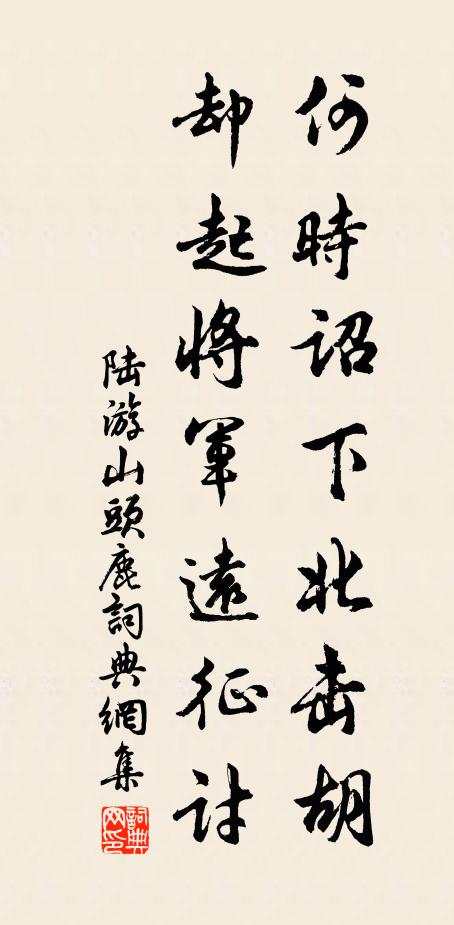 何時詔下北击胡
却起將軍遠征討
陆游山頭鹿詞典網集
詞典網印